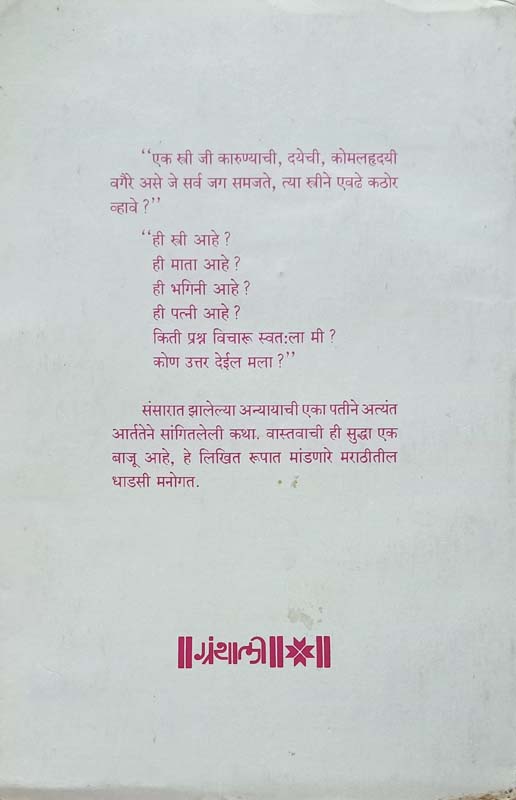 “एक स्त्री जी कारुण्याची, दयेची, कोमलहृदयी
वगैरे असे जे सर्व जग समजते, त्या स्त्रीने एवढे कठोर
व्हावे ?”
“ही स्त्री आहे ?
ही माता आहे ?
ही भगिनी आहे ?
ही पत्नी आहे ?
किती प्रश्न विचारू स्वत:ला मी ?
कोण उत्तर देईल मला ?”
संसारात झालेल्या अन्यायाची एका पतीने अत्यंत
आर्ततेने सांगितलेली कथा. वास्तवाची ही सुद्धा एक
बाजू आहे, हे लिखित रूपात मांडणारे मराठीतील
धाडसी मनोगत.
॥ग्रंथाली॥॥